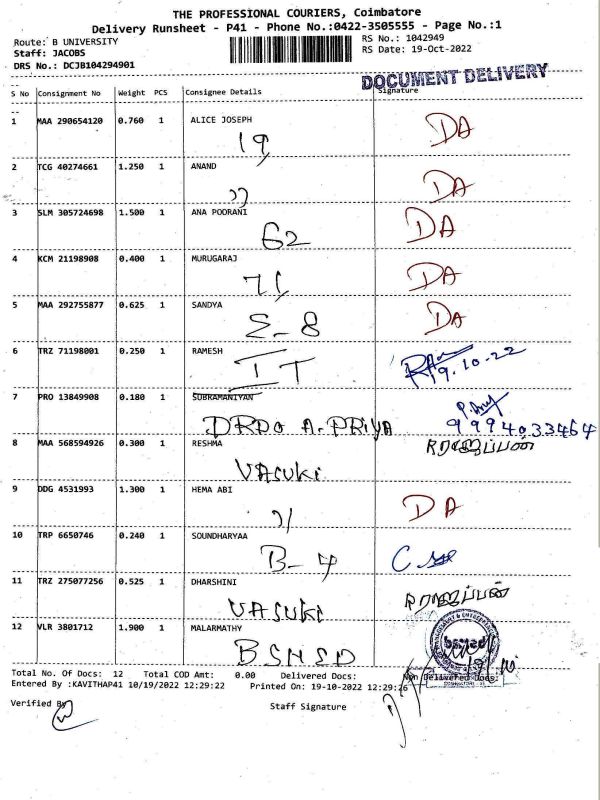 THE PROFESSIONAL COURIERS, Coimbatore
Delivery Runsheet - P41 - Phone No.:0422-3505555 - Page No.:1
Route: B UNIVERSITY
RS No.: 1042949
Staff: JACOBS
RS Date: 19-Oct-2022
DRS No.: DCJB104294901
DOCUMENT DELIVERY
S No Consignment No Weight PCS Consignee Details Signature
1 MAA 290654120 0.760 1 ALICE JOSEPH
19, DA
2 TCG 40274661 1.250 1 ANAND
DA
3 SLM 305724698 1.500 1 ANA POORANI
62 DA
4 KCM 21198908 0.400 1 MURUGARAJ
71, DA
5 MAA 292755877 0.625 1 SANDYA
Σ-8 DA
6 TRZ 71198001 0.250 1 RAMESH
IT 19.10.22
7 PRO 13849908 0.180 1 SUBRAMANIYAN
DRDO A.PRIYA 9994033464
8 MAA 568594926 0.300 1 RESHMA
VASUKI R ராஜப்பன்
9 DDG 4531993 1.300 1 HEMA ABI
DA
10 TRP 6650746 0.240 1 SOUNDHARYAA
B-4
11 TRZ 275077256 0.525 1 DHARSHINI
VASUKI R ராஜப்பன்
12 VLR 3801712 1.900 1 MALARMATHY
BSNSD
Total No. Of Docs: 12 Total COD Amt: 0.00 Delivered Docs: Non Delivered Docs:
Entered By :KAVITHAP41 10/19/2022 12:29:22 Printed On: 19-10-2022 12:29:26
Verified By
Staff Signature